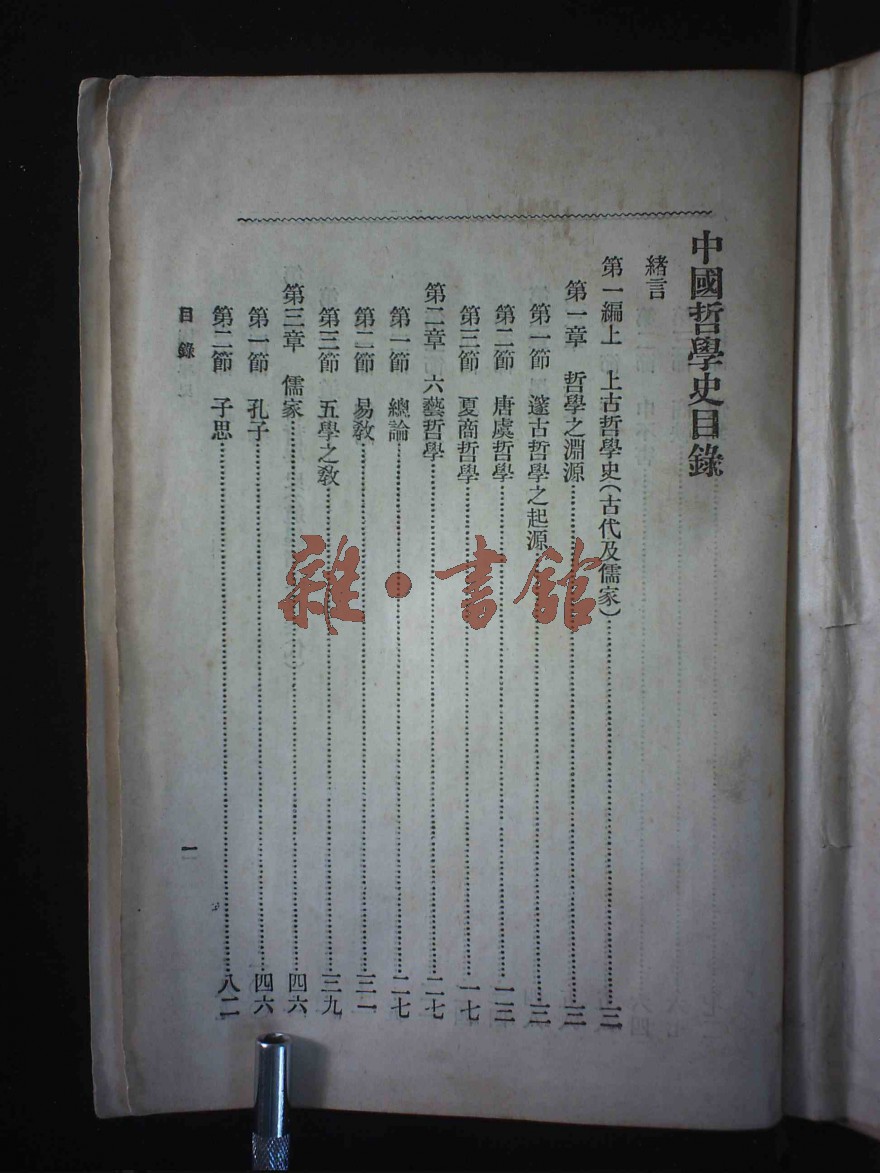 中國哲學史目錄
緒言
第一編上　上古哲學史(古代及儒家)……三
第一章　哲學之淵源……三
第一節　邃古哲學之起源……三
第二節　唐虞哲學……一三
第三節　夏商哲學……一七
第二章　六藝哲學……二七
第一節　總論……二七
第二節　易教……三一
第三節　五學之教……三九
第三章　儒家……四六
第一節　孔子……四六
第二節　子思……八二
目錄
一
雜·書館